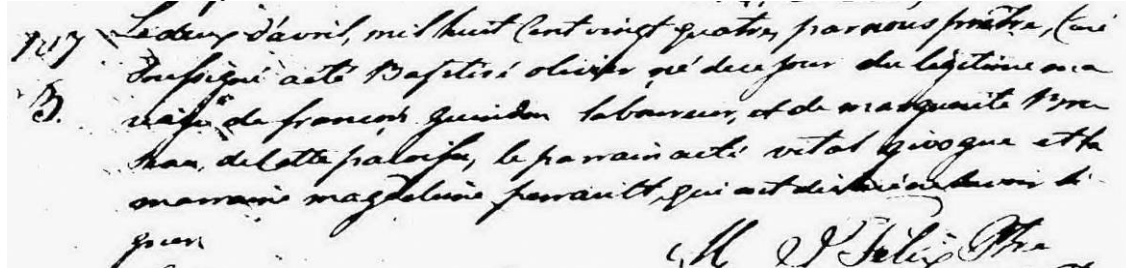 Le deux d'avril, mil huit Cent vingt quatre, par nous prêtre, Curé
Soussigné a été Baptisé olivier né de ce jour du légitime ma
riage de françois guindon laboureur, et de marguerite
de Cette paroisse, le parrain a été vital givogue et la
marraine magdeleine perrault, qui ont déclaré ne savoir si
gner
M J Félix Ptre
B.